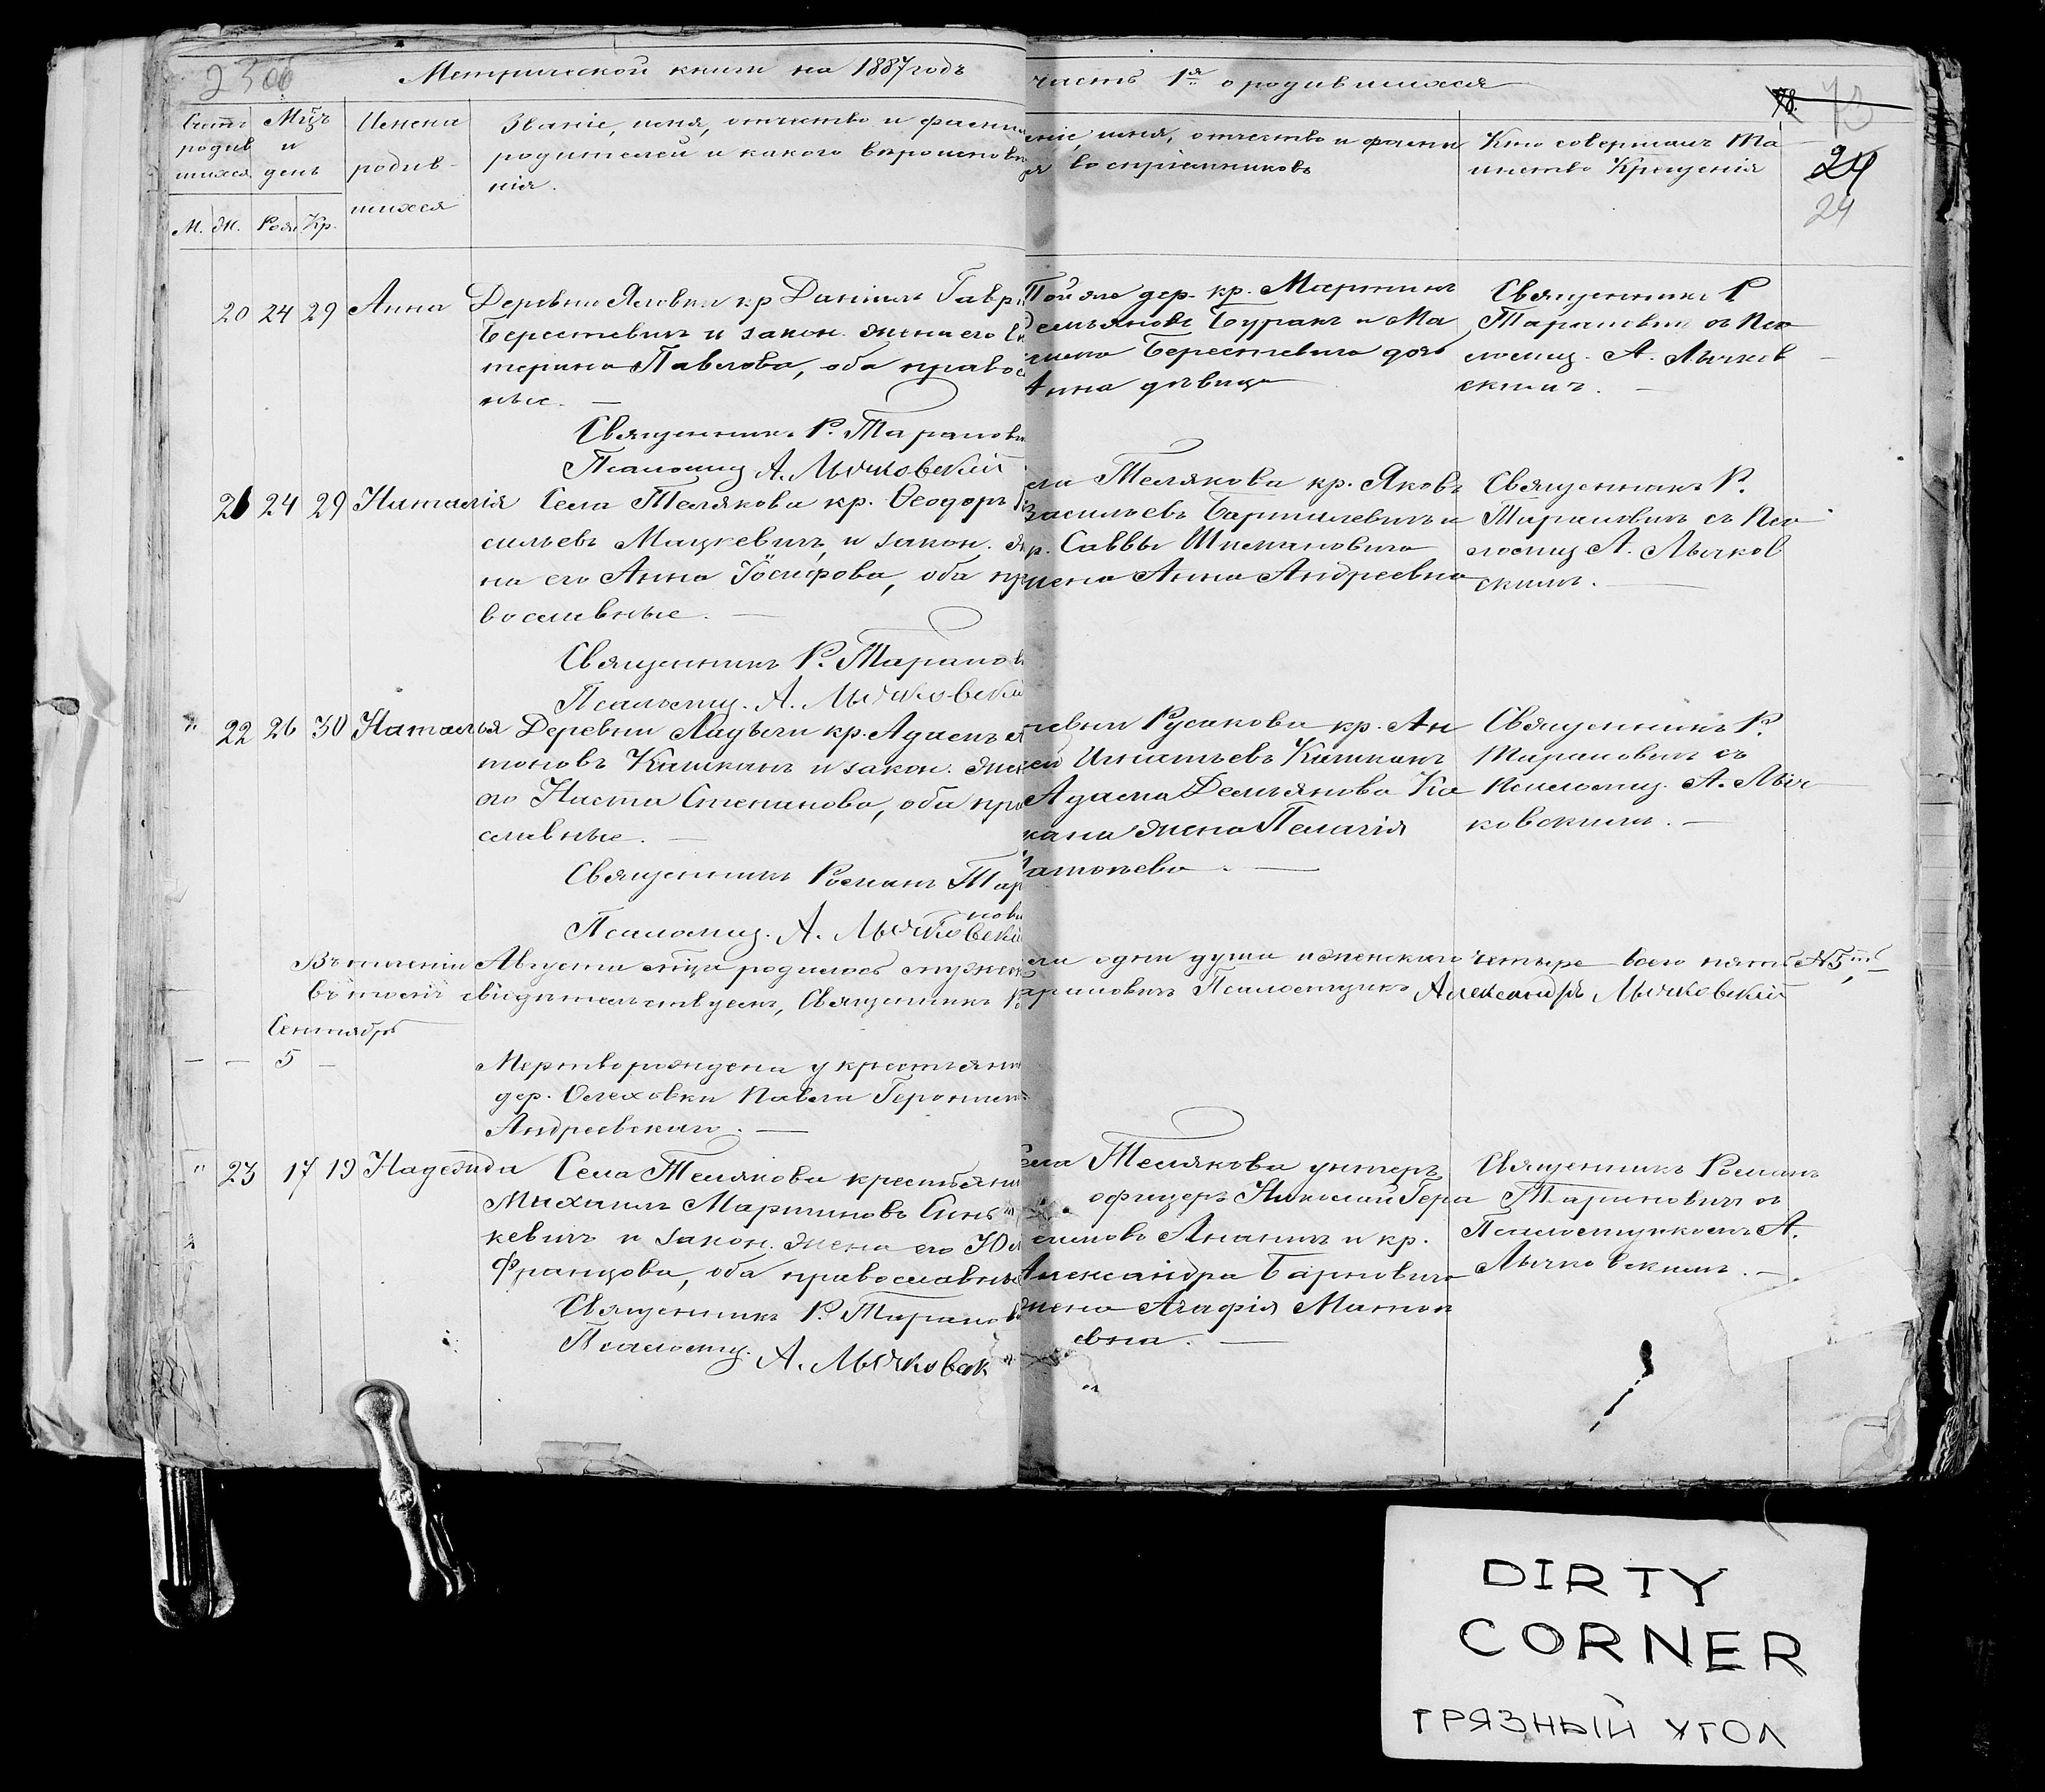 2306
Метрической книги на 1887 годъ
часть 1я о родившихся
78. 78
24
24
Счетъ родив шихся
Мцъ и день
Имена родив- шихся
Званіе, имя, отчество и фамил
родителей и какого вѣроисповѣ
нія.
еніе, имя, отчество и фами
воспріемниковъ
Кто совершалъ Та
инство Крещенія
М. Ж. Рож. Кр.
20 24 29 Анна
Деревни Яловки кр Даніилъ Гавр
Берестевичъ и закон. жена его Ек
терина Павлова, оба правос
ные. —
Священникъ Р. Таранови
Псаломщ А. Лычковскій
Той же дер. кр. Мартинъ
Демьяновъ Буракъ и Ма
Берестевича дочь
Анна дѣвица
Священникъ Р
Тарановичъ съ Пса
ломщ. А. Лычков
скимъ. —
21 24 29 Наталія
Села Телякова кр. Ѳеодоръ
сильевъ Мацкевичъ, и закон. же
на его Анна Іосифова, оба пр
вославные. —
Священникъ Р. Таранов
Псаломщ. А. Лычковскій
Телякова кр. Яковъ
Васильевъ и
р. Саввы Шимановича
жена Анна Андреевна
Священникъ Р.
Тарановичъ съ Пса
ломщ А. Лычков
скимъ. —
" 22 26 30 Наталья
Деревни кр. Адамъ Ан
тоновъ Кашканъ и закон. жен
его Наста Степанова, оба пра
славные. —
Священникъ Романъ Тар
нови
Псаломщ. А. Лычковскі
ревни Русакова кр. Ан
Игнатьевъ Кашканъ
Адама Демьянова Ка
кана жена Пелагія
Матѳеева. —
Священникъ Р.
Тарановичъ съ
Псаломщ. А. Лыч
ковскимъ. —
Въ теченіи Августа мѣца родилось мужеск
ола одни душа и женскаго четыре всего пять №5
въ томъ свидѣтельствуемъ, Священникъ Ро
арановичъ Псаломщикъ Александръ Лычковскій
Сентябрь
— — 5 —
Мертворождена у крестьянин
дер. Олеховки Павла Героним
Андреевскаго. —
" 23 17 19 Надежда
Села Телякова крестьянин
Михаилъ Мартиновъ Синь
кевичъ и закон. жена его Юл
Францова, оба православны
Священникъ Р. Таранов
Псаломщ.
А. Лычковск
Села Телякова унтеръ
офицеръ Николай Гера
симовъ Ананичъ и кр.
Александра Барновича
жена Агафія Матѳе
евна. —
Священникъ Романъ
Тарановичъ съ
Псаломщикомъ А.
Лычковскимъ. —
DIRTY
CORNER
ГРЯЗНЫЙ УГОЛ